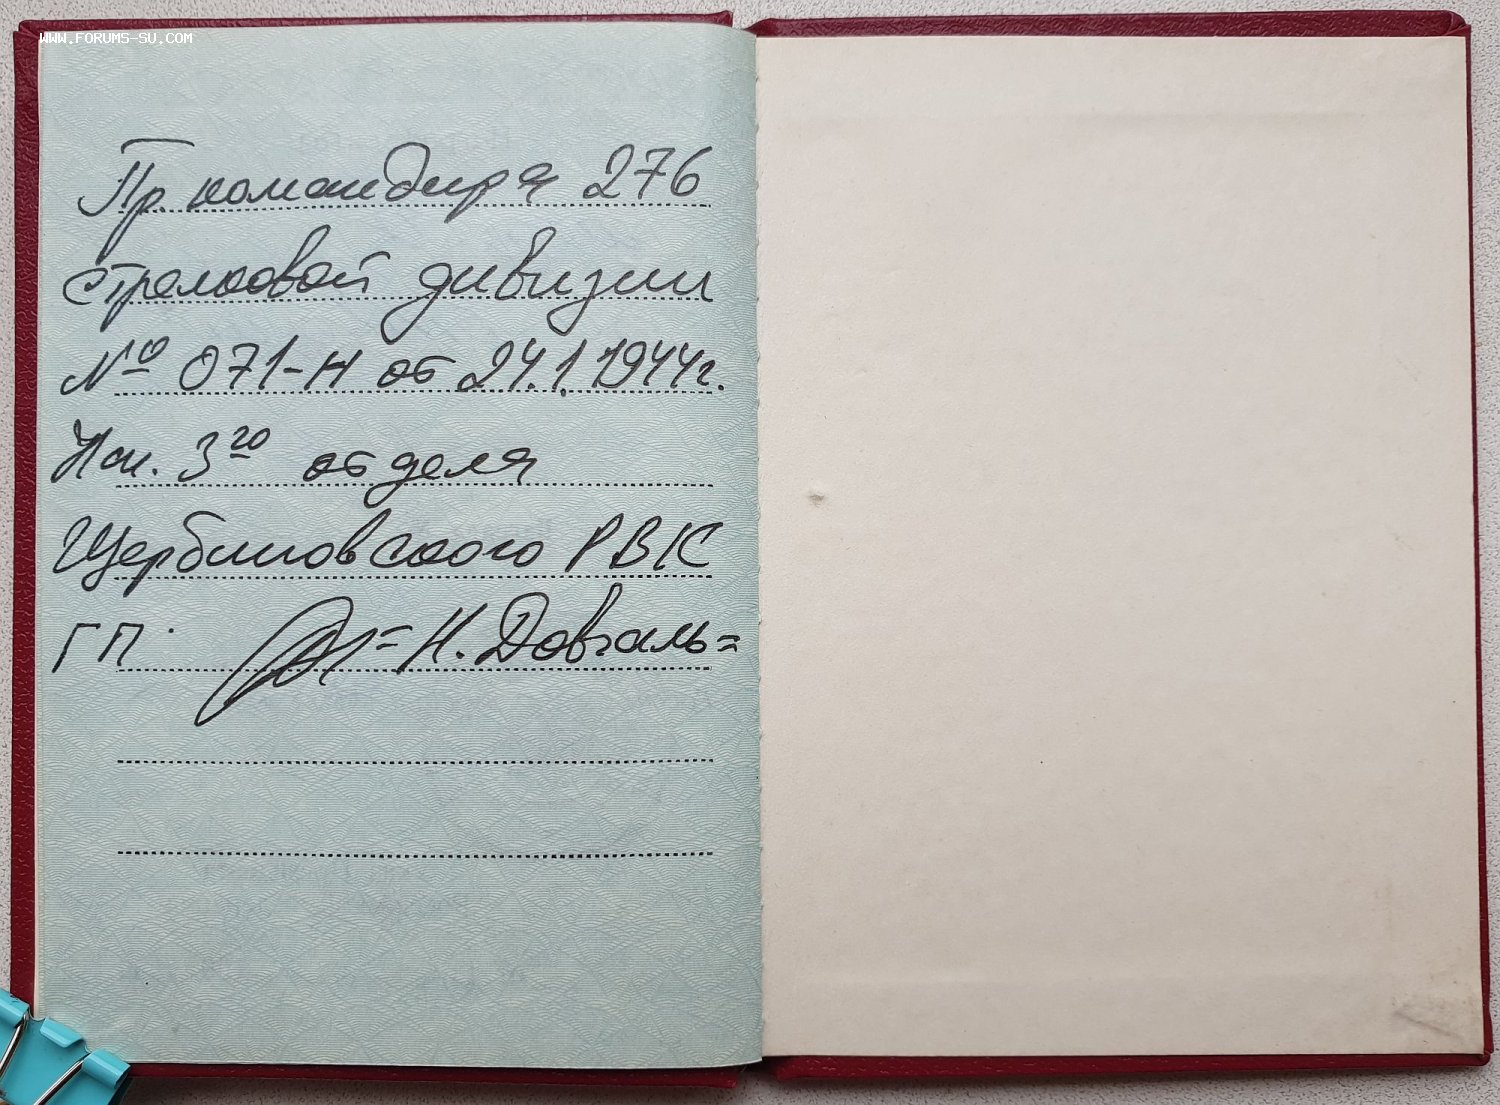 WWW.FORUMS-SU.COM
Пр. командира 276
стрелковой дивизии
№ 071-н от 24.1.1944г.
Нач. 3го отдела
Щербиновского РВК
ГП. =Н. Довгаль=